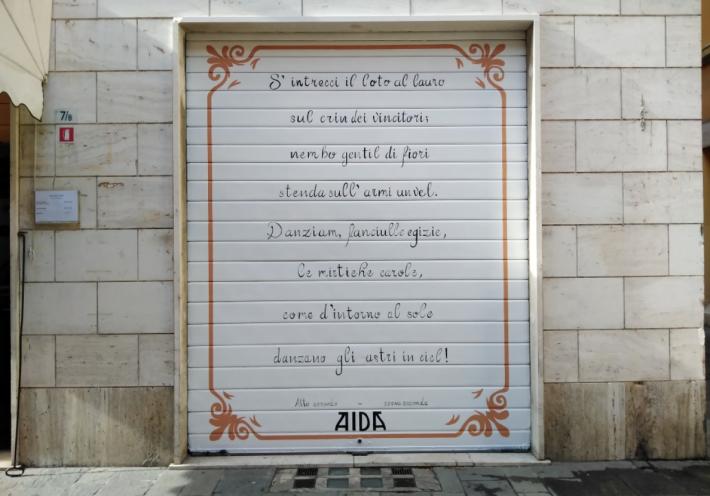 7/8
S' intrecci il loto al lauro
sul crin dei vincitori;
nembo gentil di fiori
stenda sull' armi un vel.
Danziam, fanciulle egizie,
le mistiche carole,
come d'intorno al sole
danzano gli astri in ciel!
Atto secondo – scena seconda
AIDA